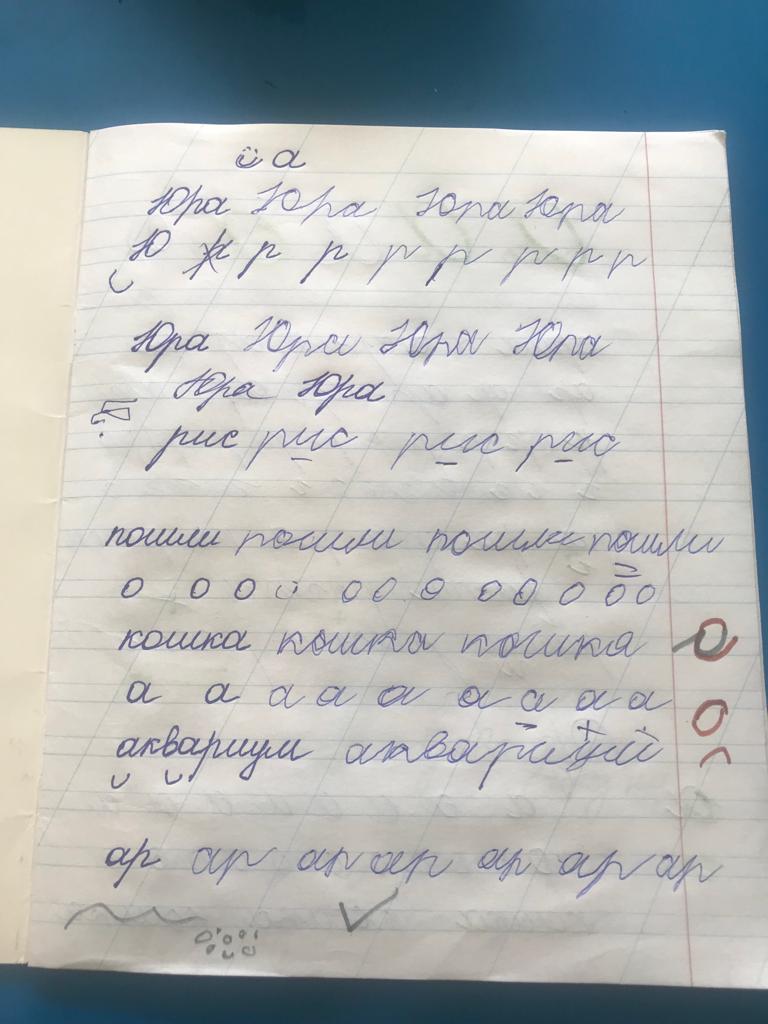 а
Юра Юра Юра Юра
Ю р р р р р р р
Юра Юра Юра Юра
Юра Юра
рис рис рис рис
пошли пошли пошли пошли
о о о о о о о о о о о о
кошка кошка кошка
а а а а а а а а а
аквариум
ар ар ар ар ар ар ар